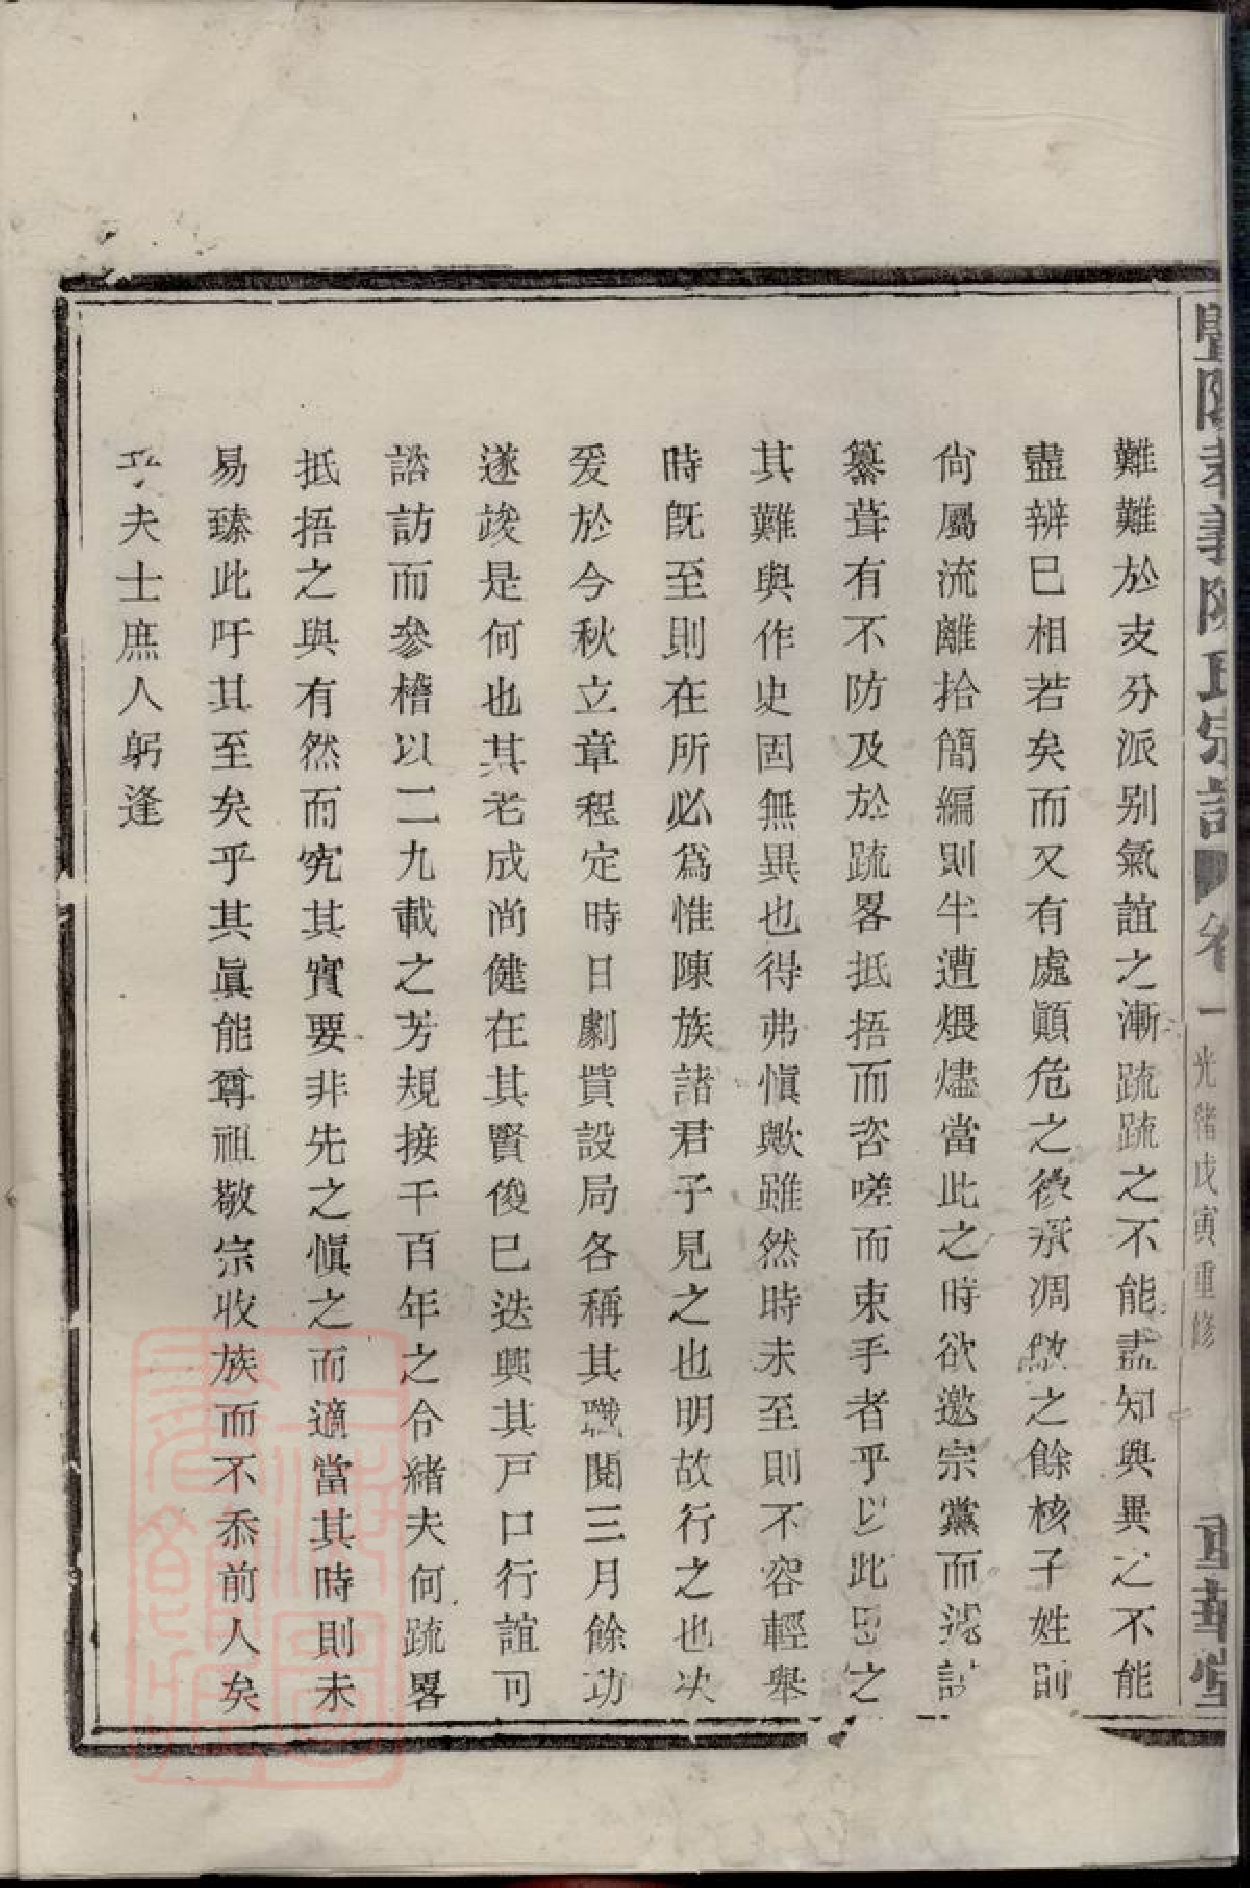 暨陽孝義陳氏宗譜 卷一 光緒戊寅重修 重華堂
難難於支分派別氣誼之漸疏疏之不能盡知與異之不能
盡辨巳相若矣而又有處顚危之後承凋敝之餘核子姓則
尙屬流離拾簡編則半遭煨燼當此之時欲邀宗黨而謀譜
纂葺有不防及於疏畧抵捂而咨嗟而束手者乎以此思之
其難與作史固無異也得弗愼歟雖然時未至則不容輕舉
時旣至則在所必爲惟陳族諸君子見之也明故行之也决
爰於今秋立章程定時日劇貲設局各稱其職閱三月餘功
遂竣是何也其老成尚健在其賢俊巳迭興其戸口行誼可
諮訪而參稽以二九載之芳規接千百年之令緒夫何疏畧
抵捂之與有然而究其實要非先之愼之而適當其時則未
易臻此吁其至矣乎其眞能尊祖敬宗收族而不忝前人矣
乎夫士庶人躬逢
上海圖書館藏